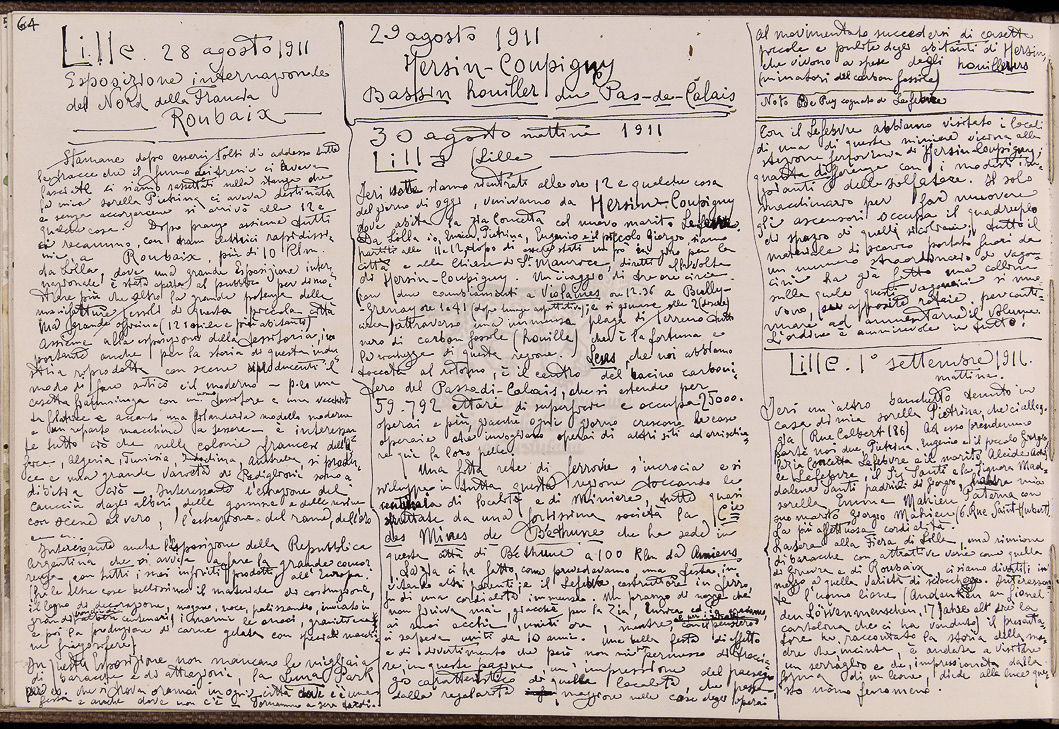 64
Lille. 28 agosto 1911
Esposizione internazionale
del Nord della Francia
Roubaix
Stamane dopo esserci tolti di addosso tutte
le tracce che il fumo dei treni ci aveva
lasciate ci siamo rassettati nella stanza che
la mia sorella Pietrina ci aveva destinata
e senza accorgersene si arrivò alle 12 e
qualche cosa. Dopo pranzo assieme tutti
ci recammo, con i tram elettrici rapidissi-
mi, a Roubaix, più di 10 Klm.
da Lilla, dove una grande Esposizione inter
nazionale è stata aperta al pubblico per dimo-
strare più che altro la grande potenza delle
manifatture tessili di questa piccola città
ma grande officina (121 mila e più abitanti)
Assieme alla esposizione della tessitoria, im
portante anche per la storia di questa indu
stria riprodotta con scene riproducenti il
modo di fare antico e il moderno - p. es. una
casetta fiamminga con un tessitore e una vecchia
filatrice e accanto una filanderia modello moderna
e con reparto macchine da tessere - è interessan
te tutto ciò che nelle colonie francesi dell'
Africa, Algeria, Tunisia, Indocina, si produ
ce e una grande varietà di Padiglioni sono a
dibiti a ciò - Interessante l'estrazione del
caucciù dagli alberi, delle gomme e delle resine
con scene al vero, l'estrazione del rame, dell'oro
Interessante anche l'esposizione della Repubblica
Argentina che si avvia a fare la grande concor
renza, con tutti i suoi infiniti prodotti all'Europa.
Fra le altre cose bellissimo il materiale di costruzione,
il legno di decorazione, mogano, noce, palissandro,
i marmi, le onici, granito ecc
e poi la produzione di carne gelata con speciali macchi
ne frigorifere)
In questa Esposizione non mancano le migliaia
di baracche e di attrazioni, la Luna Park
che si trova oramai in ogni città dove c'è una
festa e anche dove non c'è
29 agosto 1911
Hersin-Coupigny
Bassin houiller du Pas-de-Calais
30 agosto mattina 1911
Lilla (Lille)
Ieri notte siamo rientrati alle ore 12 e qualche cosa
del giorno di oggi, venivamo da Hersin-Coupigny
dove abita la zia Concetta col nuovo marito Lefebvre
Da Lilla io, Enrica, Pietrina, Eugenio e il piccolo Giorgio, siamo
partiti alle 11.12 dopo di essere stati un po' in giro per la
città e alla Chiesa di St Maurice, diretti alla volta
di Hersin-Coupigny. Un viaggio di tre ore circa
con due cambiamenti a Violaines ore 12.36 a Bully-
Grenay ore 1.41 dopo lunga aspettativa, e si giunse alle 2 (dorate
circa) attraverso una immensa plaga di terreno tutto
nero di carbon fossile (houille) che è la fortuna e
la ricchezza di questa regione. Lens, che noi abbiamo
toccato al ritorno, è il centro del bacino carboni-
fero del Passo di Calais, che si estende per
59.792 ettari di superficie e occupa 25000
operai e più, giacché ogni giorno crescono le case
operaie che invogliano operai di altri siti ad arrischia
re qui la loro pelle
Una fitta rete di ferrovie s'incrocia e si
sviluppa in tutta questa regione toccando le
centinaia di località e di Miniere, tutte quasi
sfruttate da una fortissima società la Cie
des Mines de Béthune che ha sede in
questa città di Béthune a 100 Klm da Amiens
La zia ci ha fatto come prevedevamo una festa, in
vitando altri parenti, e il Lefebvre costruttore in ferro,
fu di una cordialità immensa. Un pranzo di nozze che
non finiva mai, giacché per la zia, Enrica ed
ai suoi occhi, uniti ora, mentre
ci sapeva uniti da 10 anni. Una bella festa di affetto
e di divertimento che però non mi permesso di schizza
re in queste pagine, un'impressione del paesag-
gio caratteristico di quella località, che pecca
dalla regolarità maggiore nelle case degli operai
al movimentato succedersi di casette
piccole e pulite degli abitanti di Hersin,
che vivono a spese degli houilleurs
(minatori del carbon fossile)
Noto De Puy cognato de Lefebvre
Con il Lefebvre abbiamo visitato i locali
di una di queste miniere vicino alla
stazione ferroviaria di Hersin Coupigny;
quantità di forza con i modesti im-
pianti delle solfatare. Il solo
macchinario per far muovere
gli ascensori occupa il quadruplo
di spazio di quelli siciliani; tutto il
materiale di scarico portato fuori da
un numero straordinario di vagon-
cini ha già fatto una collina
sulla quale questi vagoncini si muo
vono, per apposite rotaie, per conti-
nuare ad aumentarne il volume.
L'ordine è ammirevole in tutto!
Lille. 1º settembre 1911.
mattina.
Ieri un altro banchetto tenuto in
casa di mia sorella Pietrina, che ci alleg-
gia (Rue Colbert 186) Ad esso presenziano
parte noi due, Pietrina, Eugenio e il piccolo Giorgio,
la zia Concetta Lefebvre e il marito Alcide
le Lefebvre, il Sig. Santi e la Signora Mad-
dalena Santi padrini di Giorgio, l'altra mia
sorella Emma Mahieu Paterna con
suo marito Giorgio Mahieu (6 Rue Saint Hubert)
La più affettuosa cordialità.
La sera alla Fiera di Lilla, una riunione
di baracche con attrattive varie come quella
di Ginevra e di Roubaix ci siamo divertiti in
mezzo a quella varietà di sciocchezze. Interessan
te l'uomo leone (Andenken an Lionel
den Löwenmenschen, 17 Jahre alt dice la
cartolina che ci ha venduto) il presenta
tore ha raccontato la storia della ma-
dre che incinta, è andata a visitare
un serraglio e che impressionata dalla
forma di un leone, diede alla luce que
sto uomo fenomeno.